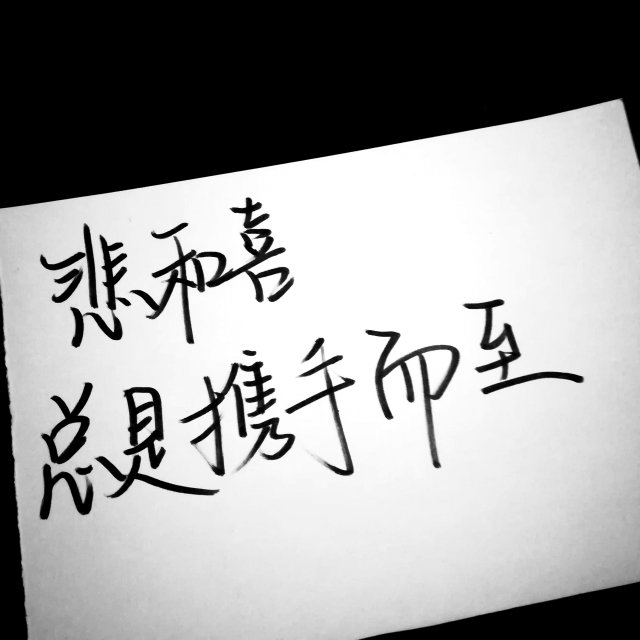 悲和喜
总是携手而至